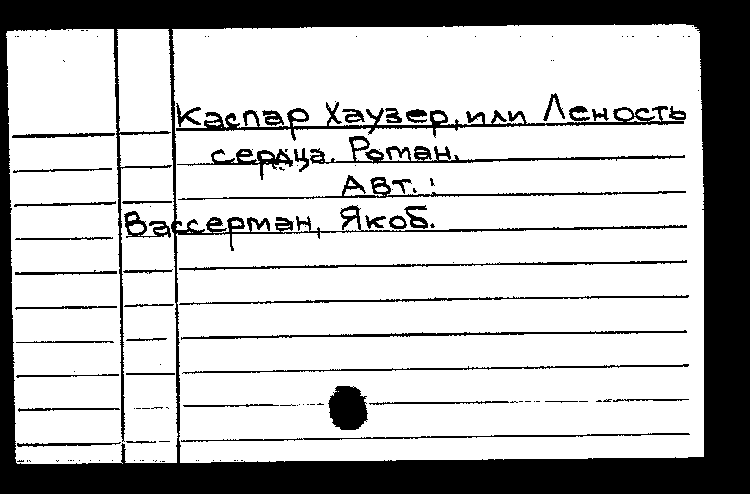 Каспар Хаузер, или Леность
сердца. Роман.
Авт.:
Вассерман, Якоб.